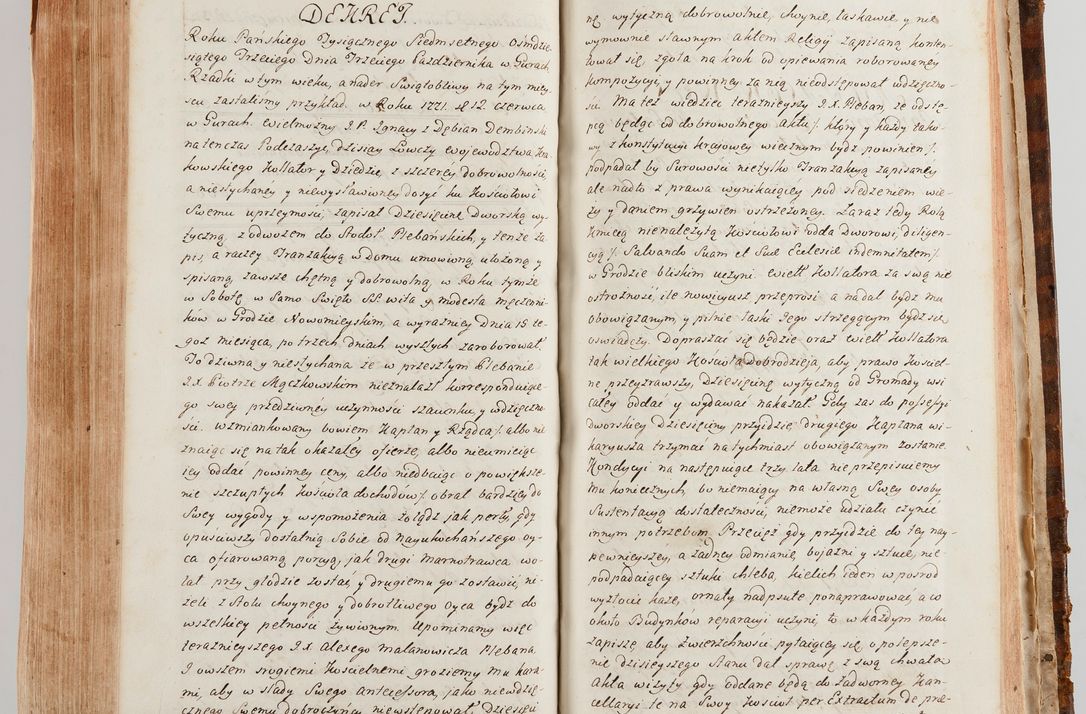 DEKRET.
Roku Pańskiego Tysiącznego Siedmsetnego Ośmdzie
siątego Trzeciego Dnia Trzeciego Października w Gurach.
Rzadki w tym wieku, a nader Swiątobliwy na tym mey-
scu zastaliśmy przykład. w Roku 1771. d 12 czerwca
w Gurach. Ewielmożny J.P. Ignacy z Dębian Dembinski
natenczas Podczaszy, dzisiay Łowczy Ewojewodztwa Kra
kowskiego Kollator y Dziedzic, z szczerey dobrowolności,
a niesłychaney y niewysławioney dosyć ku Kościołowi
Swemu uprzeymości, zapisał Dziesięcinę Dworską wy-
tyczną, z odwozem do Stodoł Plebańskich, y tenże za
pis, a raczey Tranzakcyą w Domu umowioną ułożoną y
spisaną, zawsze chętną y dobrowolną, w Roku tymże
w Sobotę w Samo Swięto SS. wita y modesta męczenni-
kow w Grodzie Nowomieyskim, a wyrazniey Dnia 15 te-
goż miesiąca, po trzech dniach wyszłych zaroborował.
To dziwna y niesłychana że w przeszłym Plebanie
J.X. Piotrze Mączkowskim nieznalazł korrespondujące-
go swey przedziwney uczynności szacunku, y wdzięczno-
ści. wzmiankowany bowiem Kapłan y Rządca /. albo nie
znaiąc się na tak okazałey ofierze, albo nieumieiąc
iey oddać powinney ceny, albo niedbaiąc o powiększe-
nie szczupłych kościoła dochodow /. obrał bardziey do
Swey wygody y wspomożenia żołądz jak perły, gdy
opuściwszy dostatnią Sobie od Nayukochańszego oy-
ca ofiarowaną porcyą, jak drugi Marnotrawca wo-
lał przy głodzie zostać, y drugiemu go zostawić, ni-
żeli z Stołu chwynego y dobrotliwego Oyca bydz do
wszelkiey pełności żywionym. Upominamy więc
teraznieyszego J.X Alexego Malanowicza Plebana
I owszem srogiemi Kościelnemi groziemy mu kara
mi, aby w slady Swego antecesora, jako niewdzię-
cznego Swemu dobroczyńcy niewstępował, Dziesięci
nę wytyczną dobrowolnie, chwynie, łaskawie, y nie
wymownie sławnym aktem Religij zapisaną konten
tował się, zgoła na krok od opiewania roborowaney
kompozycyi, y powinney za nią nieodstępował wdzięczno-
ści. Ma też wiedziec teraznieyszy J.X. Pleban, że odstę-
pcą będąc od dobrowolnego aktu /. który y każdy tako-
wy z konstytucyi krajowey wiecznym bydz powinien /.
podpadał by Surowości nietylko Tranzakcyą zapisaney
ale nadto z prawa wynikaiącey pod siedzeniem wie-
ży y daniem grzywien ostrzeżoney. Zaraz tedy Rolą
Kmiecą nienależytą Kościołowi odda Dworowi, diligen-
cyą /. Salvando Suam et Suae Ecclesiae indemnitatem /.
w Grodzie bliskim uczyni. Ewielł Kollatora za swą nie
ostrożność, ile nowicyusz przeprosi a nadal bydz mu
obowiązanym, y pilnie łaski Jego strzegącym bydz się
oswiadczy. Dopraszać się będzie oraz Ewielł Kollatora
tak wielkiego Kościoła dobrodzieja, aby prawo Kościel-
ne przeyzrawszy, Dziesięcinę wytyczną od Gromady wsi
całey oddać y wydawać nakazał. Gdy zaś do possessyi
dworskiey dziesięciny przyidzie, drugiego Kapłana wi-
karyusza trzymać natychmiast obowiązanym zostanie.
Kondycyi na następuiące trzy lata nie przepisuiemy
mu koniecznych, bo niemaiący na własną Swey osoby
Sustentacyą dostateczności, niemoże udziału czynić
innym potrzebom. Przecież gdy przyidzie do tey nay-
pewnieyszey, a żadney odmianie, bojaźni y sztuce, nie
podpadaiącey sztuki chleba, kielich ieden w posrod
wyzłocić każe, ornaty nadpsute ponaprawować, a co
około Budynków reparacyi uczyni, to w każdym roku
zapisze, aby zwierzchności pytaiącey się o polepsze-
nie dzisieyszego Stanu dał sprawę z swą chwałą
Akta wizyty, gdy oddane będą do Zadworney Kan-
cellaryi te na Swoy Kościoł per Extractum de prae-